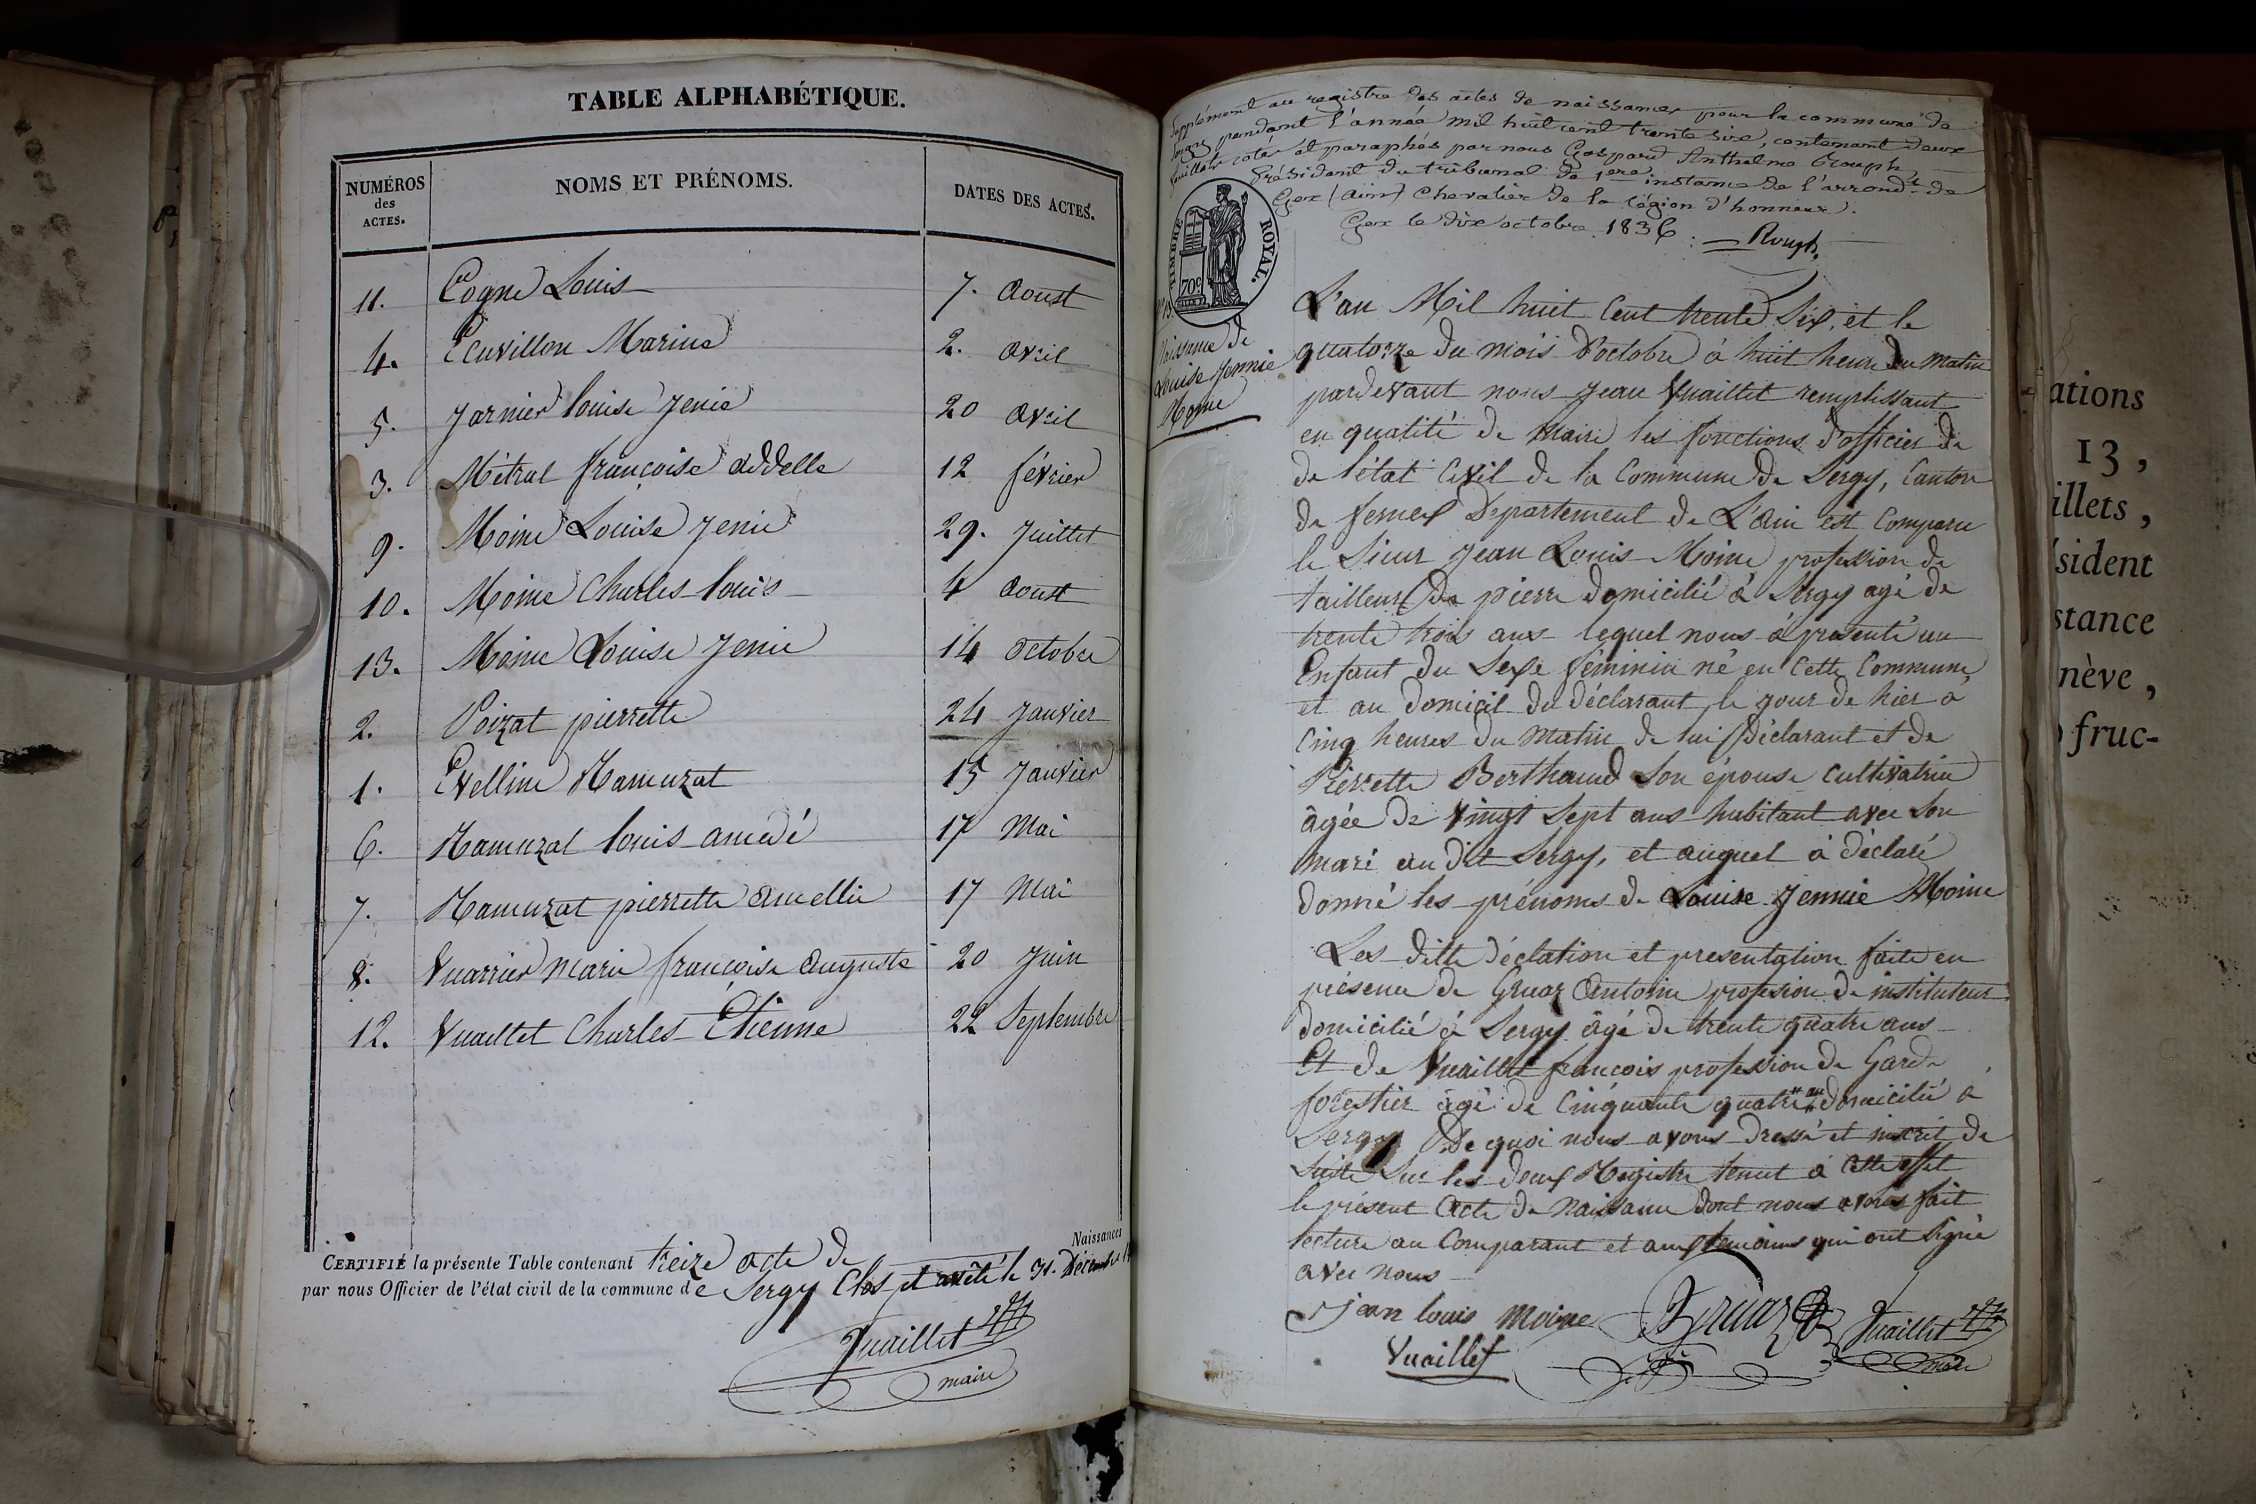 TABLE ALPHABÉTIQUE.
NUMÉROS des ACTES.
NOMS ET PRÉNOMS.
DATES DES ACTES.
11. Cogne Louis 7. Aoust
4. Ecuvillon Marine 2. avril
5. Jarnier louise Jenie 20 avril
3. Métral françoise addelle 12 février
9. Moine Louise Jenie 29. Juillet
10. Moine Charles louis 4 Aoust
13. Moine Louise Jenie 14 octobre
2. Poizat pierrette 24 Janvier
1. Evelline Ramuzat 15 Janvier
6. Ramuzat louis amedé 17 Mai
7. Ramuzat pierrette amellie 17 Mai
8. Vuarrier Marie françoise Auguste 20 Juin
12. Vuaillet Charles Etienne 22 Septembre
Naissances
CERTIFIÉ la présente Table contenant treize acte de
par nous Officier de l'état civil de la commune de Sergy Clos et arrêté le 31 Décembre
Vuaillet
maire
Supplément au registre des actes de naissances pour la commune de
Sergy pendant l'année mil huit cent trente six, contenant deux
feuillets cotés et paraphés par nous Gaspard Anthelme Rouph
Président du tribunal de 1ere instance de l'arrondt de
Gex (Ain) Chevalier de la légion d'honneur.
Gex le dix octobre 1836
Rouph
TIMBRE ROYAL.
70c
N° 13
Naissance de
Louise Jennie
Moine
L'an Mil huit Cent trente Six, et le
quatorze du mois d'octobre à huit heure du Matin
pardevant nous Jean Vuaillet remplissant
en qualité de Maire les fonctions d'officier de
de l'état Civil de la Commune de Sergy, Canton
de fernex Département de L'ain est Comparu
le Sieur Jean Louis Moine profession de
tailleur de pierre domicilié à Sergy agé de
trente trois ans lequel nous à présenté un
Enfant du Sexe féminin né en Cette Commune
et au domicil du déclarant le jour de hier à
Cinq heures du Matin de lui déclarant et de
Pierrette Berthoud Son épouse Cultivatrice
âgée de Vingt Sept ans habitant avec Son
mari au dit Sergy, et auquel à déclaré
donné les prénoms de Louise Jennie Moine
Les ditte déclation et presentation faite en
présence de Gruaz Antoine profession de instituteur
domicilié à Sergy âgé de trente quatre ans
Et de Vuaillet françois profession de Garde
forestier agé de Cinquante quatre ans domicilié à
Sergy De quoi nous avons dressé et inscrit de
Suite Sur les deux Registre tenut à Cette effet
le présent Acte de Naissance dont nous avons fait
lecture au Comparant et aux temoins qui ont signé
avec nous
jean louis moine Gruaz Vuaillet
Vuaillet maire
ations
13,
illets,
sident
stance
nève,
fruc-